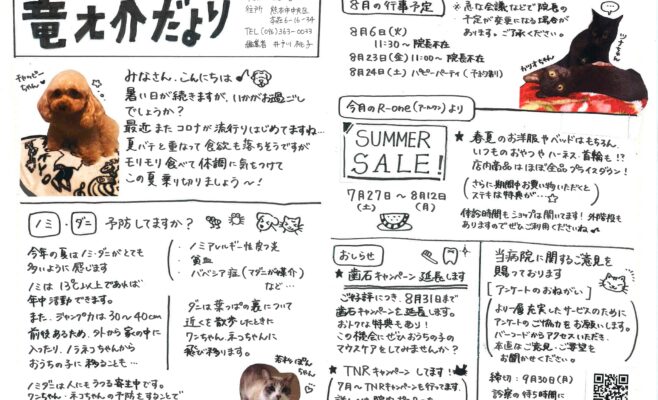 竜之介だより
住所 熊本市中央区
本荘6-16-34
TEL (096)363-0033
編集者
チャッピーちゃん♥
みなさん、こんにちは♥
暑い日が続きますが、いかがお過ごし
でしょうか?
最近またコロナが流行りはじめてますね…
夏バテと重なって食欲も落ちそうですが
モリモリ食べて体調に気をつけて
この夏乗り切りましょう〜!
ノミ・ダニ 予防してますか?
今年の夏はノミ・ダニがとても
多いように感じます
ノミは13℃以上であれば
年中活動できます。
また、ジャンプ力は30〜40cm
前後あるため、外から家の中に
入ったり、ノラネコちゃんから
おうちの子に移ることも…
ノミダニは人にもうつる寄生虫です。
ワンちゃん・ネコちゃんの予防をすることで
・ノミアレルギー性皮フ炎
・貧血
・バベシア症(マダニが媒介)
など…
ダニは葉っぱの裏について
近くを散歩したときに
ワンちゃん、ネコちゃんに
飛び移ります。
8月の行事予定
8月6日(火)
11:30〜 院長不在
8月23日(金)11:00〜 院長不在
8月24日(土) ハピーパーティ(予約制)
※急な会議などで院長の
予定が変更になる場合が
あります。ご了承ください。
ツナちゃん
カツオちゃん
今月のR-one(アールワン)より
SUMMER
SALE!
7月27日〜8月12日
(土) (月)
★春夏のお洋服やベッドはもちろん、
いつものおやつやハーネス・首輪も!?
店内商品はほぼ全品プライスダウン!
さらに期間中お買い物いただくと
ステキな特典が…☆
休診時間もショップは開いてます!外階段も
ありますのでぜひご利用くださいね
おしらせ
★歯石キャンペーン延長します
ご好評につき、8月31日まで
歯石キャンペーンを延長します。
おトクな特典もあり!
この機会にぜひおうちの子の
マウスケアをしてみませんか?
★TNRキャンペーンします!
7月〜TNRキャンペーンを行ってます。
当病院に関するご意見を
賜っております
[アンケートのおねがい]
より一層充実したサービスのために
アンケートのご協力をお願いします。
バーコードからアクセスいただき、
率直なご意見・ご要望を
お聞かせください。
締切:9月30日(月)
診察の待ち時間に